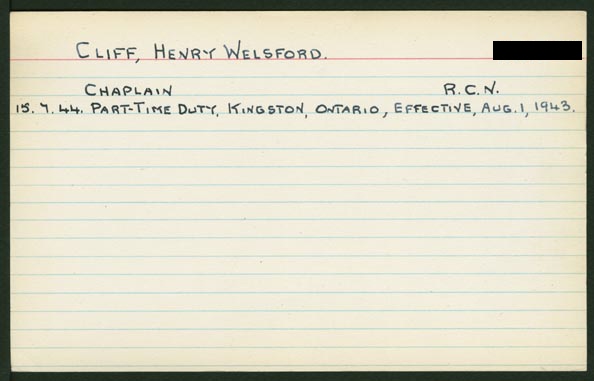 CLIFF, HENRY WELSFORD.
CHAPLAIN R.C.N.
15.7.44. PART-TIME DUTY, KINGSTON, ONTARIO, EFFECTIVE, AUG. 1, 1943.